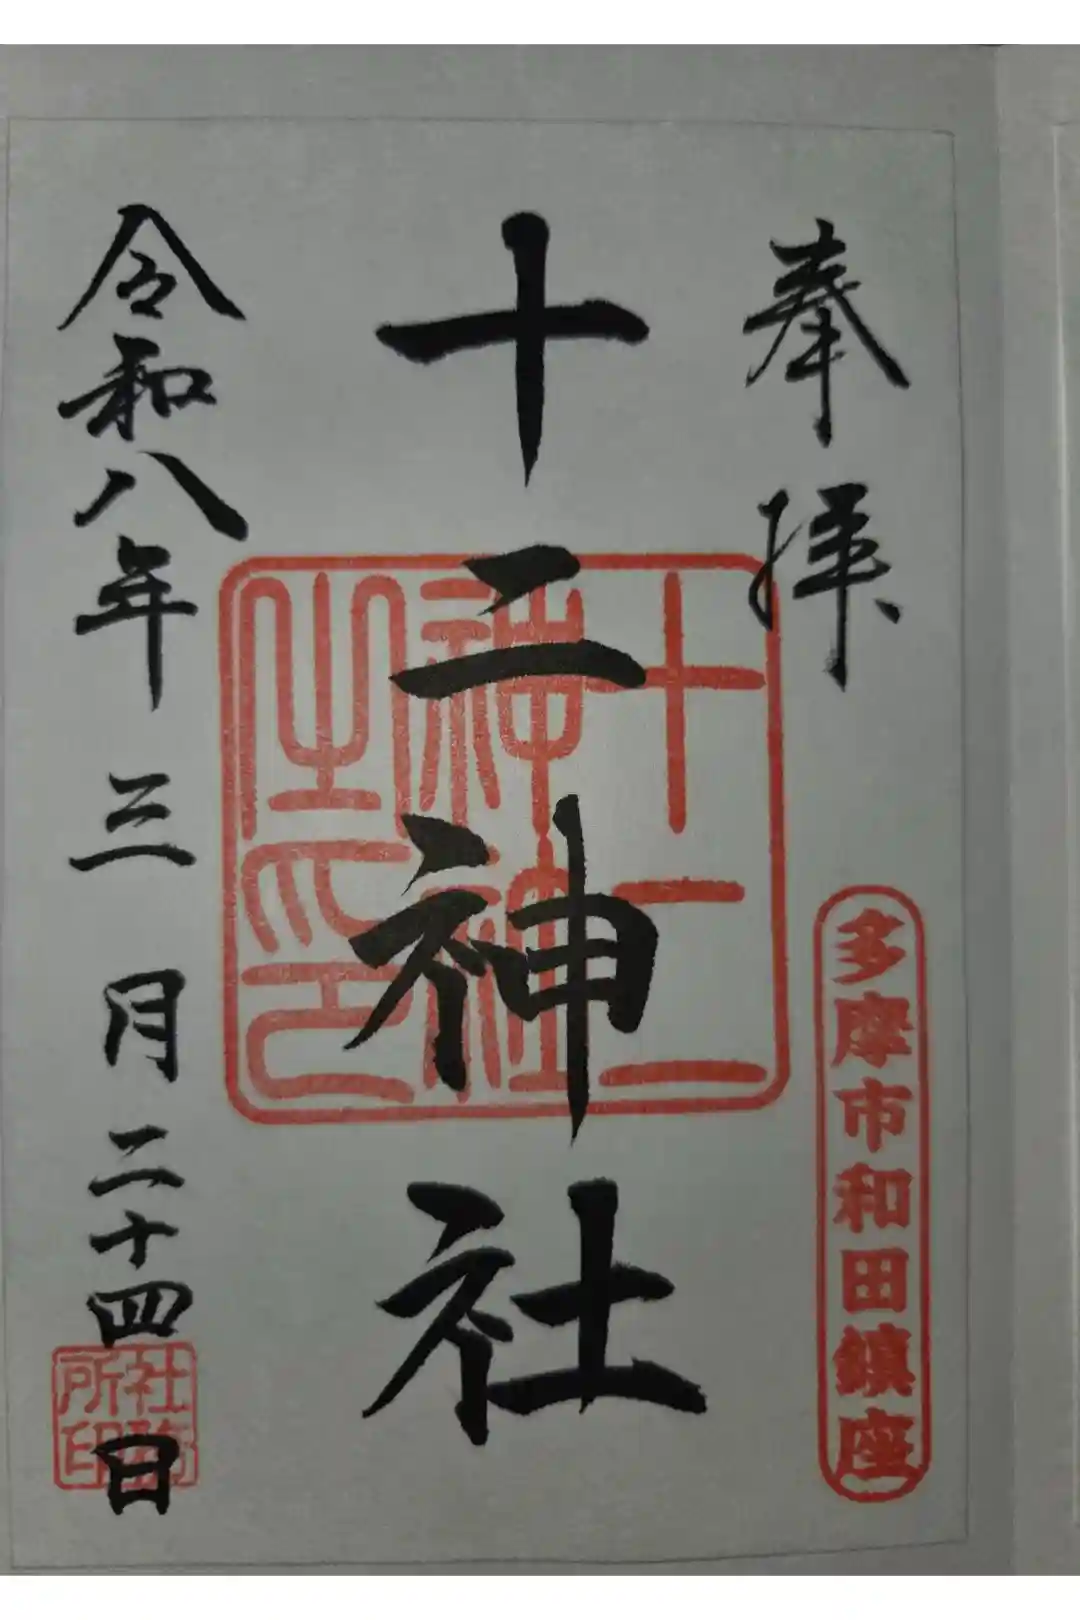 奉拝
多摩市和田鎮座
十二神社
十二
神社
之印
令和八年三月二十四日
社務
所印